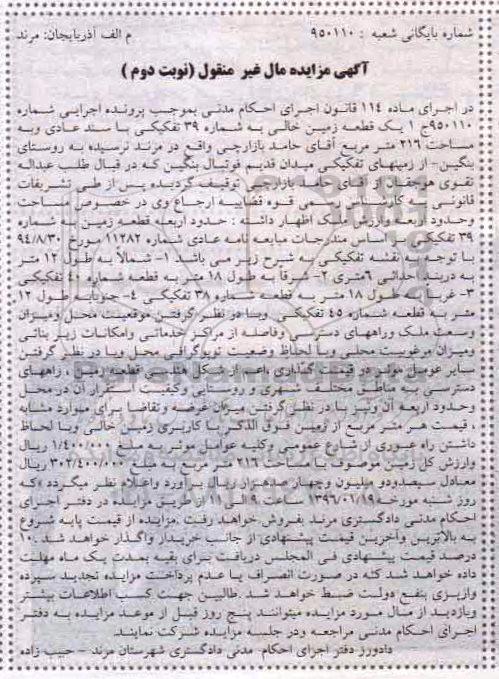 شماره بایگانی شعبه : ۹۵۰۱۱۰ م الف آذربایجان: مرند
آگهی مزایده مال غیر منقول (نوبت دوم )
در اجرای ماده ۱۱۴ قانون اجرای احکام مدنی بموجب پرونده اجرایی شماره
۹۵۰۱۱۰ج ۱ یک قطعه زمین خالی به شماره ۳۹ تفکیکی با سند عادی وبه
مساحت ۲۱۶ متر مربع آقای حامد بازارچی واقع در مرند نرسیده به روستای
بنگین- از زمینهای تفکیکی میدان قدیم فوتبال بنگین که در قبال طلب عبداله
تقوی هوجقان از آقای حامد بازارچی توقیف گردیده پس از طی تشریفات
قانونی به کارشناس رسمی قوه قضاییه ارجاع وی در خصوص مساحت
وحدود اربعه وارزش ملک اظهار داشته : حدود اربعه قطعه زمین به شماره
۳۹ تفکیکی بر اساس مندرجات مبایعه نامه عادی شماره ۱۱۲۸۲ مورخ ۹۴/۸/۳۰
با توجه به نقشه تفکیکی به شرح زیر می باشد ۱- شمالاً به طول ۱۲ متر
به دربند احداثی ۶متری ۲- شرقاً به طول ۱۸ متر به قطعه شماره ۴۰ تفکیکی
۳- غرباً به طول ۱۸ متر به قطعه شماره ۳۸ تفکیکی ۴- جنوباً به طول ۱۲
متر به قطعه شماره ۴۵ تفکیکی وبا در نظر گرفتن موقعیت محل ومیزان
وسعت ملک وراههای دسترسی وفاصله از مراکز خدماتی وامکانات زیر بنائی
ومیزان مرغوبیت محلی وبا لحاظ وضعیت توپوگرافی محل وبا در نظر گرفتن
سایر عوامل موثر در قیمت گذاری ،اعم از شکل هندسی قطعه زمین ، راههای
دسترسی به مناطق مختلف شهری و روستایی وکیفیت استقرار آن در محل
وحدود اربعه آن ونیز با در نظر گرفتن میزان عرضه وتقاضا برای موارد مشابه
، قیمت هر متر مربع از زمین فوق الذکر با کاربری زمین خالی وبا لحاظ
داشتن راه عبوری از شارع عمومی وکلیه عوامل موثر به مبلغ ۱/۴۰۰/۰۰۰ ریال
وارزش کل زمین موصوف با مساحت ۲۱۶ متر مربع به مبلغ ۳۰۲/۴۰۰/۰۰۰ ریال
معادل سیصدودو میلیون وچهارصدهزار ریال برآورد واعلام نظر میگردد »که
روز شنبه مورخه ۱۳۹۶/۰۱/۱۹ ساعت ۹ الی ۱۱ از طریق مزایده در دفتر اجرای
احکام مدنی دادگستری مرند بفروش خواهد رفت .مزایده از قیمت پایه شروع
به بالاترین واخرین قیمت پیشنهادی از جانب خریدار واگذار خواهد شد .۱۰
درصد قیمت پیشنهادی فی المجلس دریافت برای بقیه بمدت یک ماه مهلت
داده خواهد شد که در صورت انصراف یا عدم پرداخت مزایده تجدید سپرده
واریزی بنفع دولت ضبط خواهد شد .طالبین جهت کسب اطلاعات بیشتر
وبازدید از مال مورد مزایده میتوانند پنج روز قبل از موعد مزایده به دفتر
اجرای احکام مدنی مراجعه ودر جلسه مزایده شرکت نمایند.
دادورز دفتر اجرای احکام مدنی دادگستری شهرستان مرند – حبیب زاده